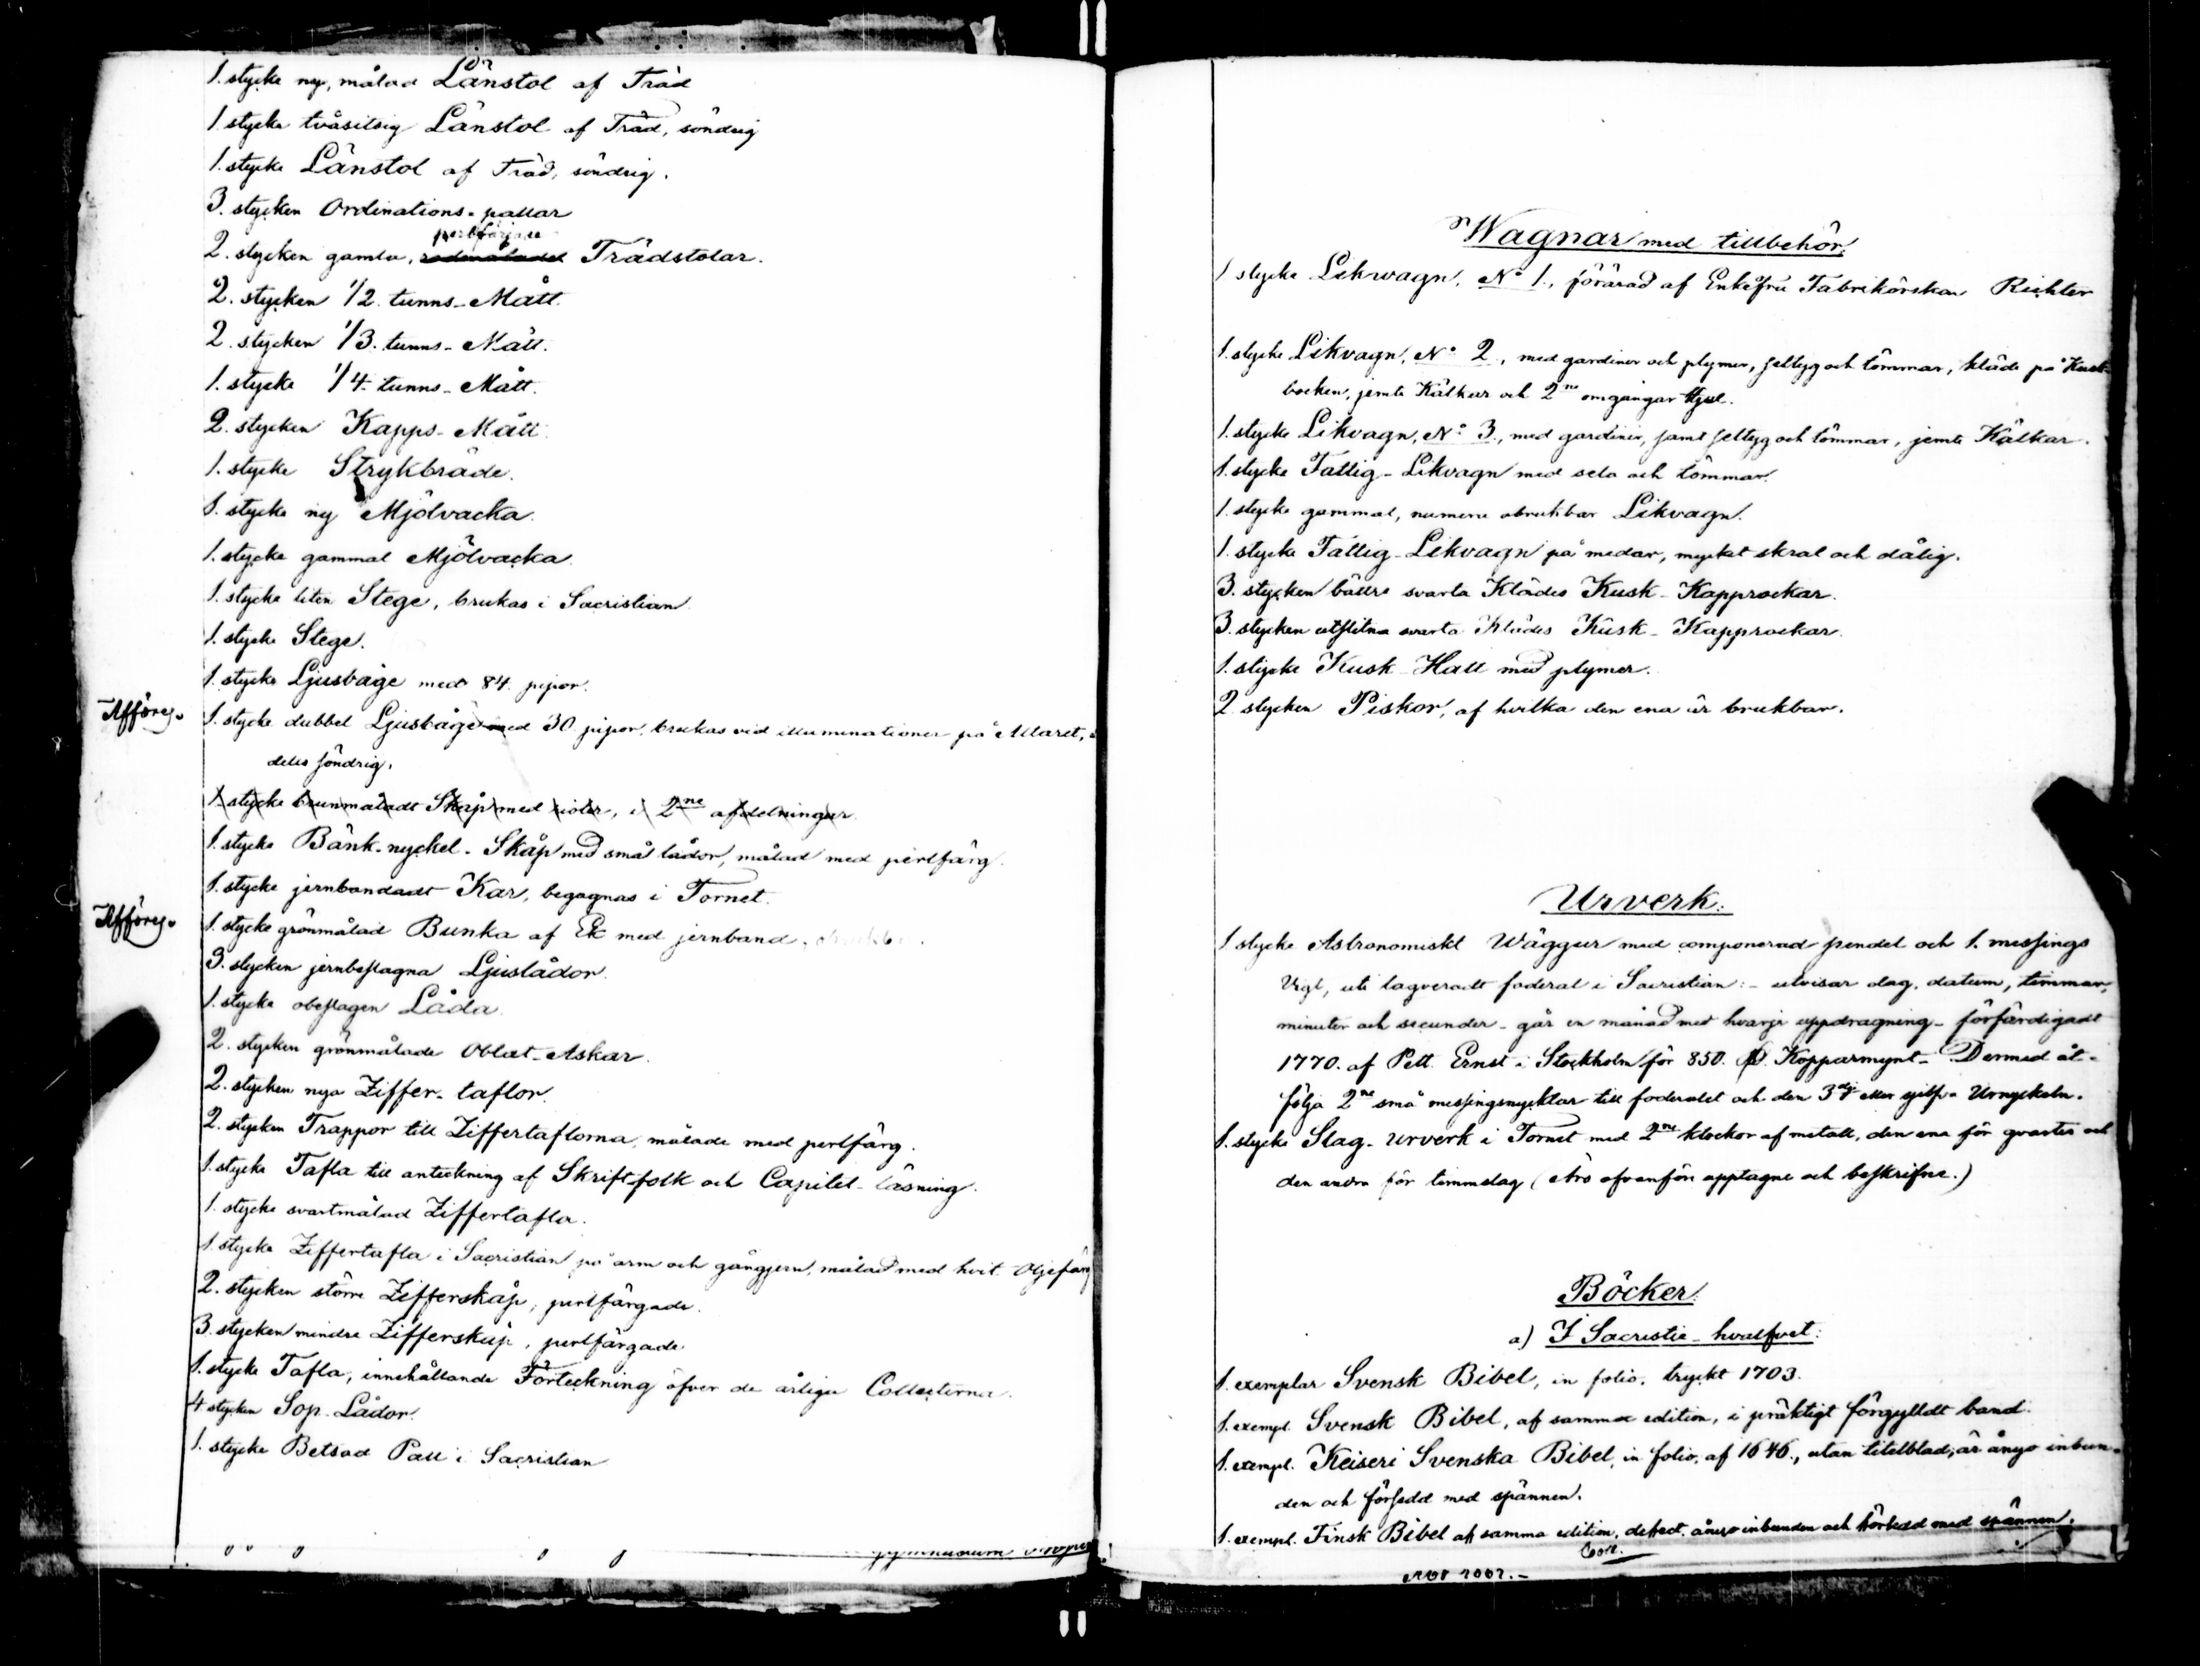 1. stycke ny, målad Länstol af Träd
1 stycke tvåsitsig Länstol af Träd, söndrig
1. stycke Länstol af Träd, söndrig.
3. stycken Ordinations-pallar
perlfärgade
2. stycken gamla, rödmålade Trädstolar.
2. stycken 1/2 tunns-Mått.
2. stycken 1/3. tunns-Mått.
1. stycke 1/4. tunns-Mått.
2. stycken Kapps-Mått
1. stycke Strykbräde.
1. stycke ny Mjölvacka.
1. stycke gammal Mjölvacka
1. stycke liten Stege, brukas i Sacristian
1. stycke Stege.
1. stycke Ljusbåge med 84. pipor.
Afföres. 1. stycke dubbel Ljusbåge med 30 pipor, brukas vid illuminationer på Altaret,
dels söndrig.
1. stycke brunmåladt Skåp med dörar, i 2ne afdelningar.
1. stycke Bänk-nyckel-Skåp med små lådor, målad med perlfärg.
1. stycke jernbandadt Kar, begagnas i Tornet.
Afföres. 1. stycke grönmålad Bunka af Ek med jernband.
3. stycken jernbeslagna Ljuslådor.
1. stycke obeslagen Låda
2. stycken grönmålade Oblat-Askar.
2. stycken nya Ziffer-taflor.
2. stycken Trappor till Ziffertaflorna, målade med perlfärg.
1. stycke Tafla till anteckning af Skriftfolk och Capitel-läsning.
1. stycke svartmålad Ziffertafla.
1. stycke Ziffertafla i Sacristian på arm och gångjern, målad med hvit Oljefärg
2. stycken större Zifferskåp, perlfärgade.
3. stycken mindre Zifferskåp, perlfärgade.
1. stycke Tafla, innehållande Förteckning öfver de årliga Collecterna.
4 stycken Sop-Lådor.
1. stycke Betsad Pall i Sacristian
Wagnar med tillbehör:
1 stycke Likwagn, No 1., förärad af Enkefru Fabrikörskan Richter
1. stycke Likvagn, No 2, med gardiner och plymer, seltyg och tömmar, kläde på Kusk-
bocken, jemte Kälkar och 2ne omgångar Hjul.
1. stycke Likvagn, No 3., med gardiner, samt seltyg och tömmar, jemte Kälkar.
1. stycke Fattig-Likvagn med sela och tömmar.
1. stycke gammal, numera obrukbar Likvagn.
1. stycke Fattig-Likvagn på medar, mycket skral och dålig.
3. stycken bättre svarta Klädes Kusk-Kapprockar.
3. stycken utslitna svarta Klädes Kusk-Kapprockar.
1. stycke Kusk-Hatt med plymer.
2 stycken Piskor, af hvilka den ena är brukbar.
Urverk:
1 stycke Astronomiskt Wäggur med componerad pendel och 1. messings
Vigt, uti lagveradt foderal i Sacristian:- utvisar dag, datum, timmar,
minuter och secunder- går en månad med hvarje uppdragning- förfärdigadt
1770. af Pett. Ernst i Stockholm för 850. D. Kopparmynt- Dermed åt-
följa 2ne små messingsnycklar till foderalet och den 3dje eller sjelfva Urnyckeln.
1. stycke Slag-urverk i Tornet med 2ne klockor af metall, den ena för qvarter och
den andra för timmslag (Äro ofvanföre upptagne och beskrifne.)
Böcker.
a) I Sacristie-hvalfvet:
1. exemplar Svensk Bibel, in folio, tryckt 1703.
1. exempl. Svensk Bibel, af samma edition, i präktigt förgylldt band.
1. exempl. Keiseri Svenska Bibel, in folio, af 1646., utan titelblad, är ånyo inbun-
den och försedd med spännen.
1. exempl. Finsk Bibel af samma edition, defect, ånyo inbunden och försedd med spännen.
Coll.